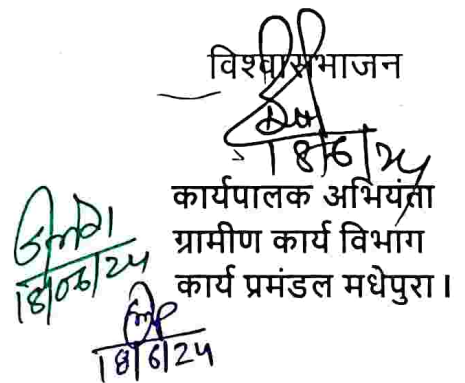 विश्वासभाजन
18/6/24
कार्यपालक अभियंता
ग्रामीण कार्य विभाग
कार्य प्रमंडल मधेपुरा।
18/06/24
18/6/24